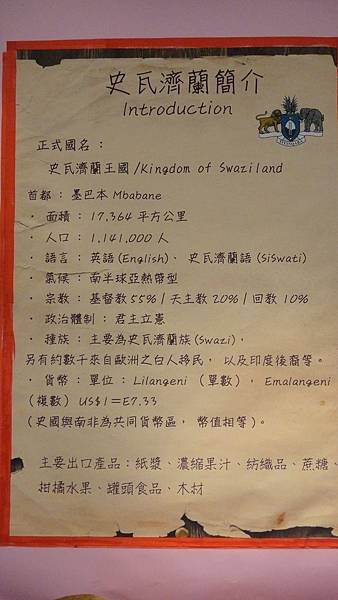 史瓦濟蘭簡介
Introduction
正式國名：
史瓦濟蘭王國/Kingdom of Swaziland
首都：墨巴本 Mbabane
· 面積：17,364 平方公里
· 人口：1,141,000 人
· 語言：英語(English)、史瓦濟蘭語(SiSwati)
· 氣候：南半球亞熱帶型
· 宗教：基督教55%/天主教20%/回教 10%
· 政治體制：君主立憲
· 種族：主要為史瓦濟蘭族(Swazi)，
另有約數千來自歐洲之白人移民，以及印度後裔等。
· 貨幣：單位：Lilangeni （單數），Emalangeni
（複數）US$1＝E7.33
(史國與南非為共同貨幣區，幣值相等)。
主要出口產品：紙漿、濃縮果汁、紡織品、蔗糖、
柑橘水果、罐頭食品、木材